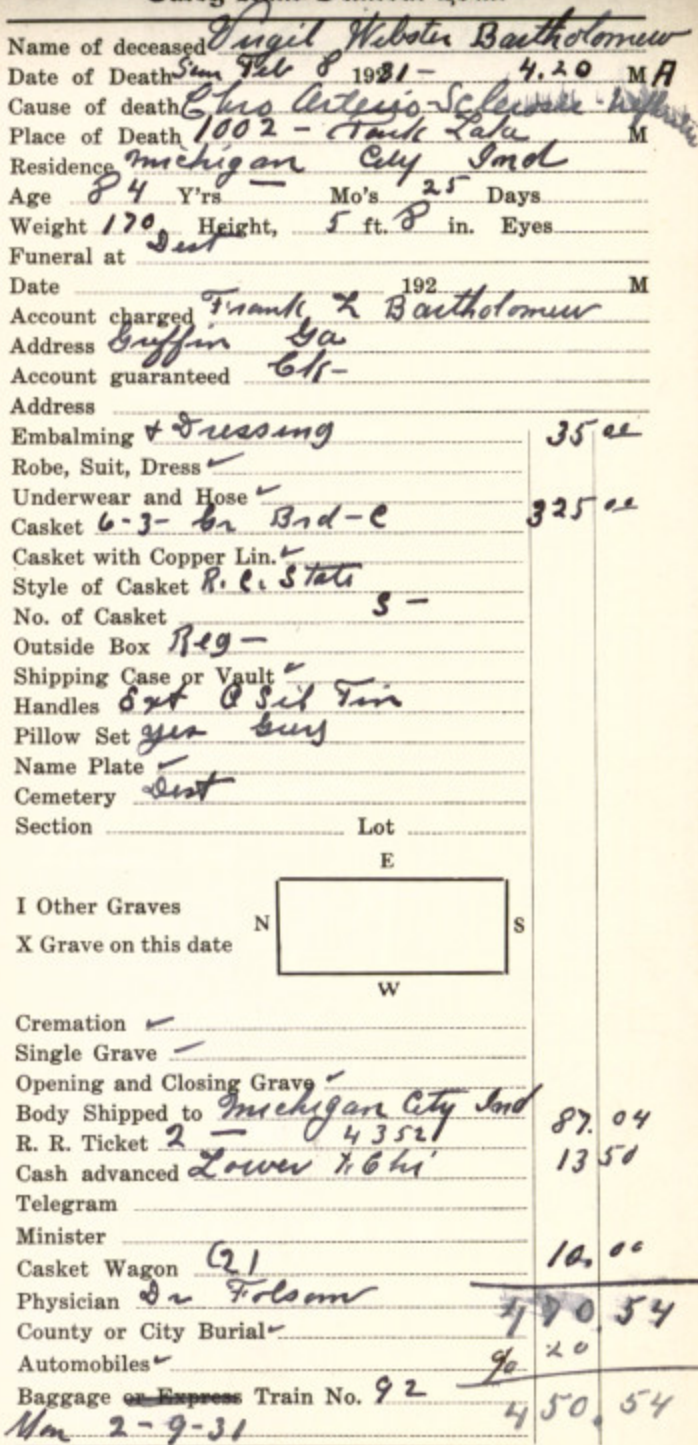 Name of deceased Virgil Webster Bartholomew
Date of Death Sun Feb 8 1931 - 4.20 M A
Cause of death Chro Arterio-Sclerosis - Nephritis
Place of Death 1002 - Lake M
Residence Michigan City Ind
Age 84 Y'rs — Mo's 25 Days
Weight 170, Height, 5 ft. 8 in. Eyes
Funeral at Dest
Date 192 M
Account charged Frank L Bartholomew
Address Griffin Ga
Account guaranteed Ck-
Address
Embalming & Dressing 35 00
Robe, Suit, Dress ✓
Underwear and Hose ✓
Casket 6-3- Brd-C 325 00
Casket with Copper Lin. ✓
Style of Casket R. C. State
No. of Casket S -
Outside Box Reg —
Shipping Case or Vault ✓
Handles Ext Sil Tin
Pillow Set yes
Name Plate ✓
Cemetery Dest
Section Lot
E
I Other Graves
N S
X Grave on this date
W
Cremation ✓
Single Grave —
Opening and Closing Grave ✓
Body Shipped to Michigan City Ind 87.04
R. R. Ticket 2 — 4352
Cash advanced Lower Chi 13 50
Telegram
Minister
Casket Wagon (2) 10.00
Physician Dr Folsom 470.54
County or City Burial ✓
Automobiles ✓ 20
Baggage or Express Train No. 92 450.54
Mon 2-9-31